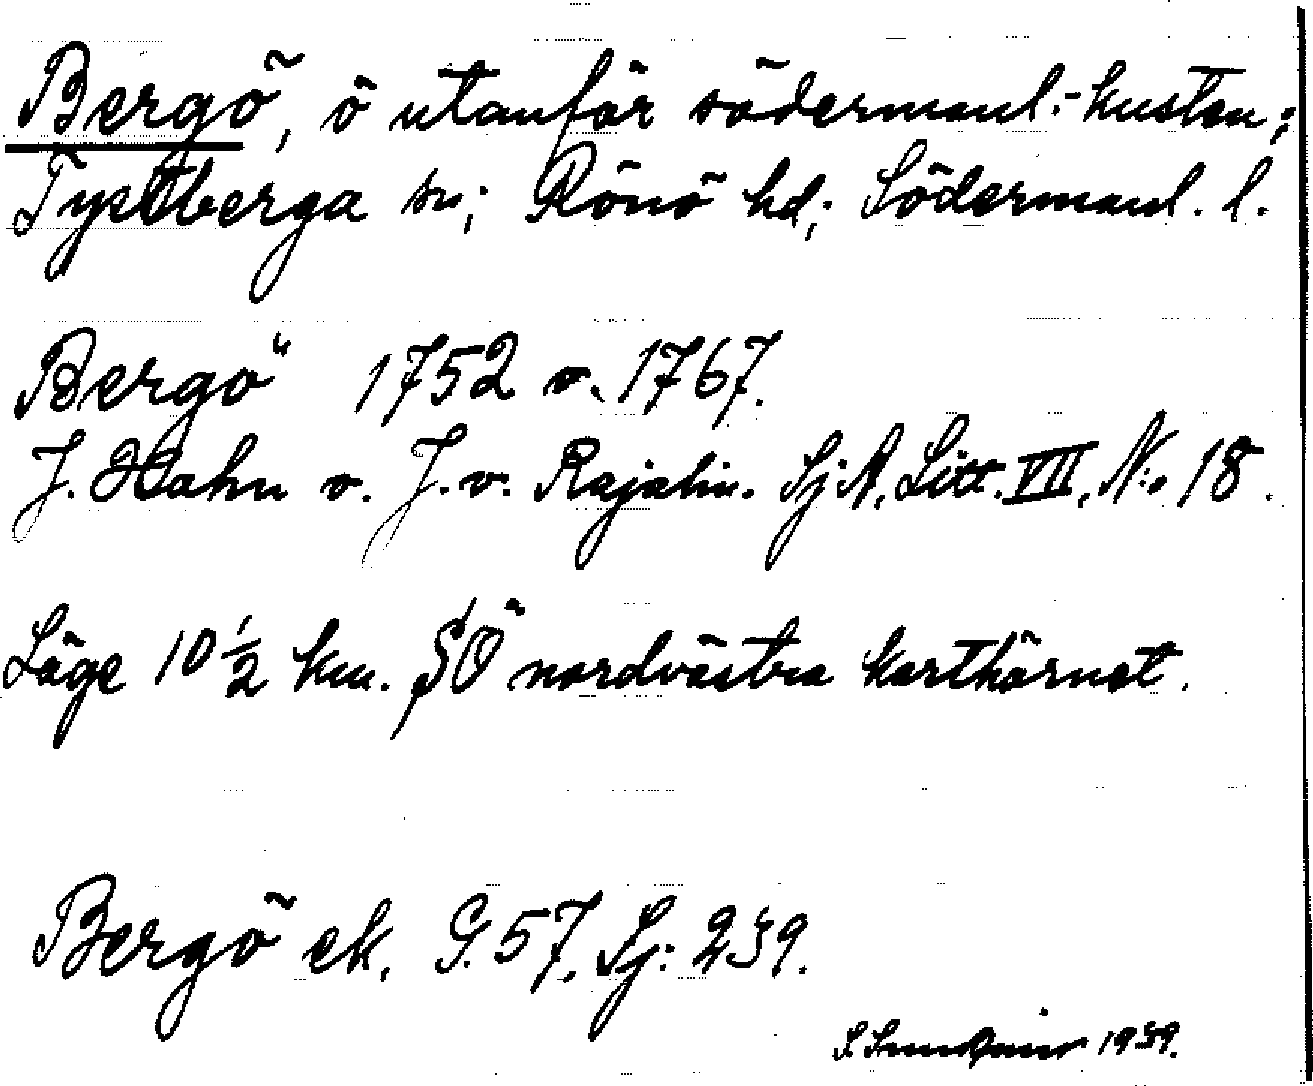 Bergö, ö utanför södermanl.-kusten;
Tystberga sn; Rönö hd; Södermanl. l.
Bergö 1752 o. 1767.
J. Hahn o. J. v. Rajalin. Sj A, Litt. VII, N:o 18.
Läge 10 1/2 km. SÖ nordvästra karthörnet.
Bergö ek. G. 57, Sj: 239.
S. 1939.